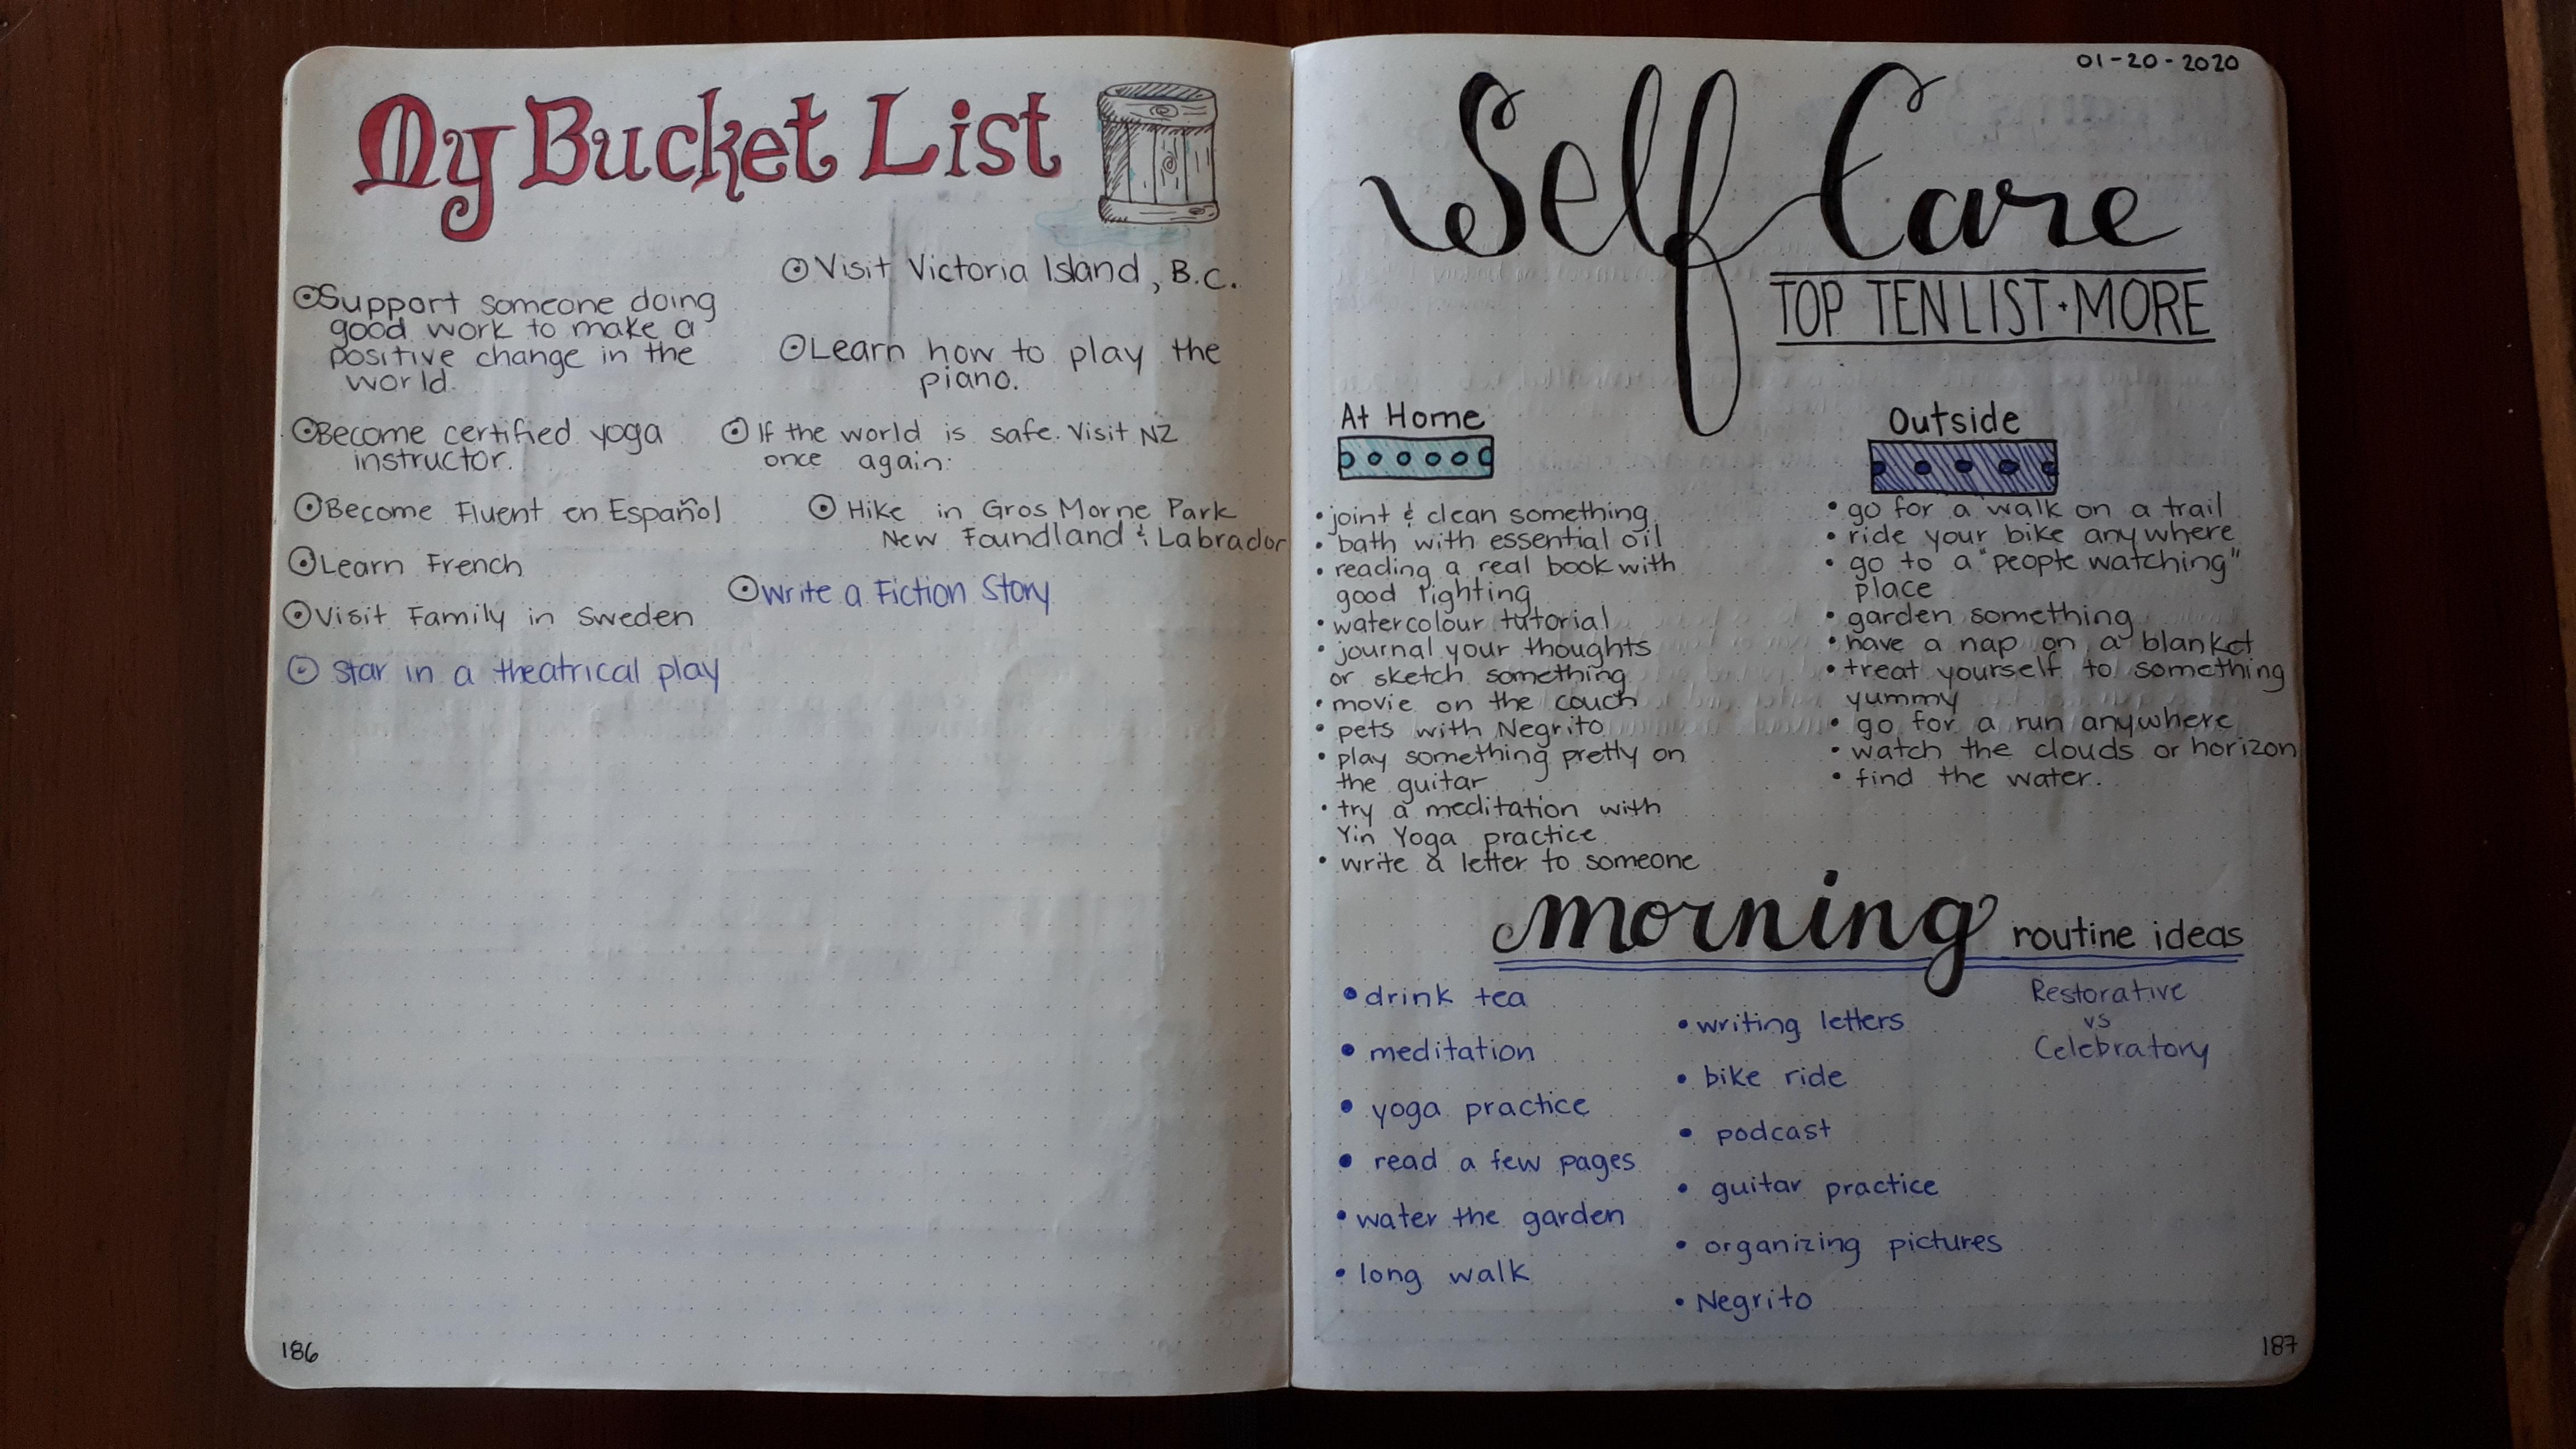 My Bucket List
⊙Support someone doing
good work to make a
positive change in the
world.
⊙Become certified yoga
instructor.
⊙Become Fluent en Español
⊙Learn French
⊙Visit Family in Sweden
⊙ Star in a theatrical play
⊙Visit Victoria Island, B.C.
⊙Learn how to play the
piano.
⊙ If the world is safe. Visit NZ
once again:
⊙ Hike in Gros Morne Park
New Foundland & Labrador
⊙Write a Fiction Story
186
01-20-2020
Self Care
TOP TEN LIST + MORE
At Home
• joint & clean something
• bath with essential oil
• reading a real book with
good lighting
• watercolour tutorial
• journal your thoughts
or sketch something
• movie on the couch
• pets with Negrito
• play something pretty on
the guitar
• try a meditation with
Yin Yoga practice
• write a letter to someone
Outside
• go for a walk on a trail
• ride your bike anywhere
• go to a "people watching"
place
• garden something
• have a nap on a blanket
• treat yourself to something
yummy
• go for a run anywhere
• watch the clouds or horizon
• find the water.
morning routine ideas
• drink tea
• meditation
• yoga practice
• read a few pages
• water the garden
• long walk
• writing letters
• bike ride
• podcast
• guitar practice
• organizing pictures
• Negrito
Restorative
vs
Celebratory
187